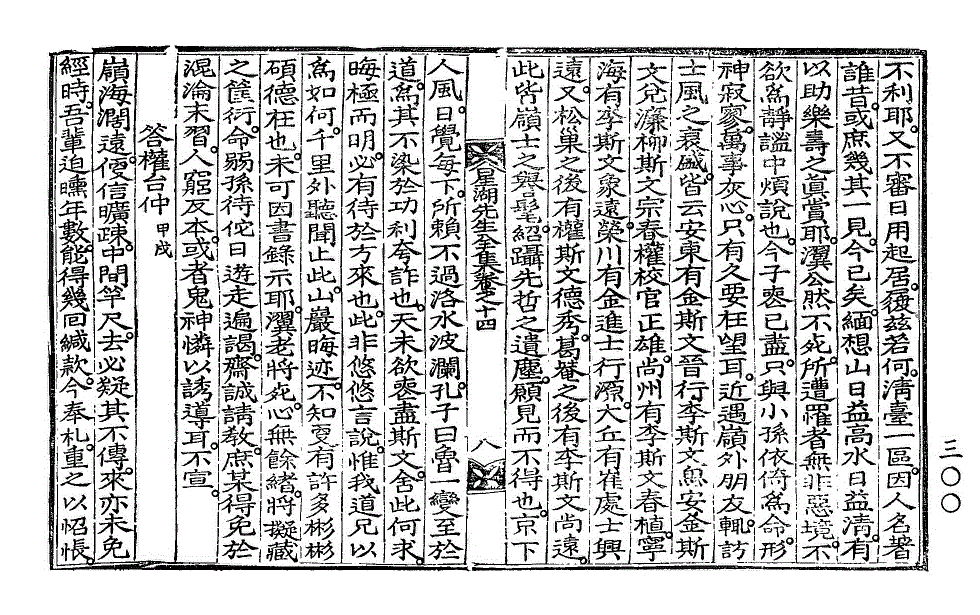 不利耶又不審日用起居復玆若何淸臺一區因人名著
誰昔或庶幾其一見今已矣緬想山日益高水日益淸有
以助樂壽之眞賞耶瀷公然不死所遭罹者無非惡境不
欲爲靜謐中煩說也今子喪已盡只與小孫依倚爲命形
神寂寥萬事灰心只有久要在望耳近遇嶺外朋友輒訪
士風之衰盛皆云安東有金斯文晉行李斯文 安金斯
文兌濂柳斯文宗春權校官正雄尙州有李斯文春植寧
海有李斯文象遠榮川有金進士行源大丘有崔處士興
遠又松巢之後有權斯文德秀葛菴之後有李斯文尙遠
此皆嶺士之譽髦紹躡先哲之遺塵願見而不得也京下
星湖先生全集卷之十四
八
人風日覺每下所賴不過洛水波瀾孔子曰魯一變至於
道爲其不染於功利夸詐也天未欲喪盡斯文舍此何求
晦極而明必有待於方來也此非悠悠言說惟我道兄以
爲如何千里外聽聞止此山嚴晦迹不知更有許多彬彬
碩德在也未可因書錄示耶瀷老將死心無餘緖將擬藏
之篋衍命弱孫待佗日遊走遍謁齋誠請敎庶某得免於
混淪末習人窮反本或者鬼神憐以誘導耳不宣
答權台仲 甲戌
嶺海濶遠便信曠疎中間竿尺去必疑其不傳來亦未免
經時吾輩迫曛年數能得幾回緘款今奉札重之以怊悵
三〇〇